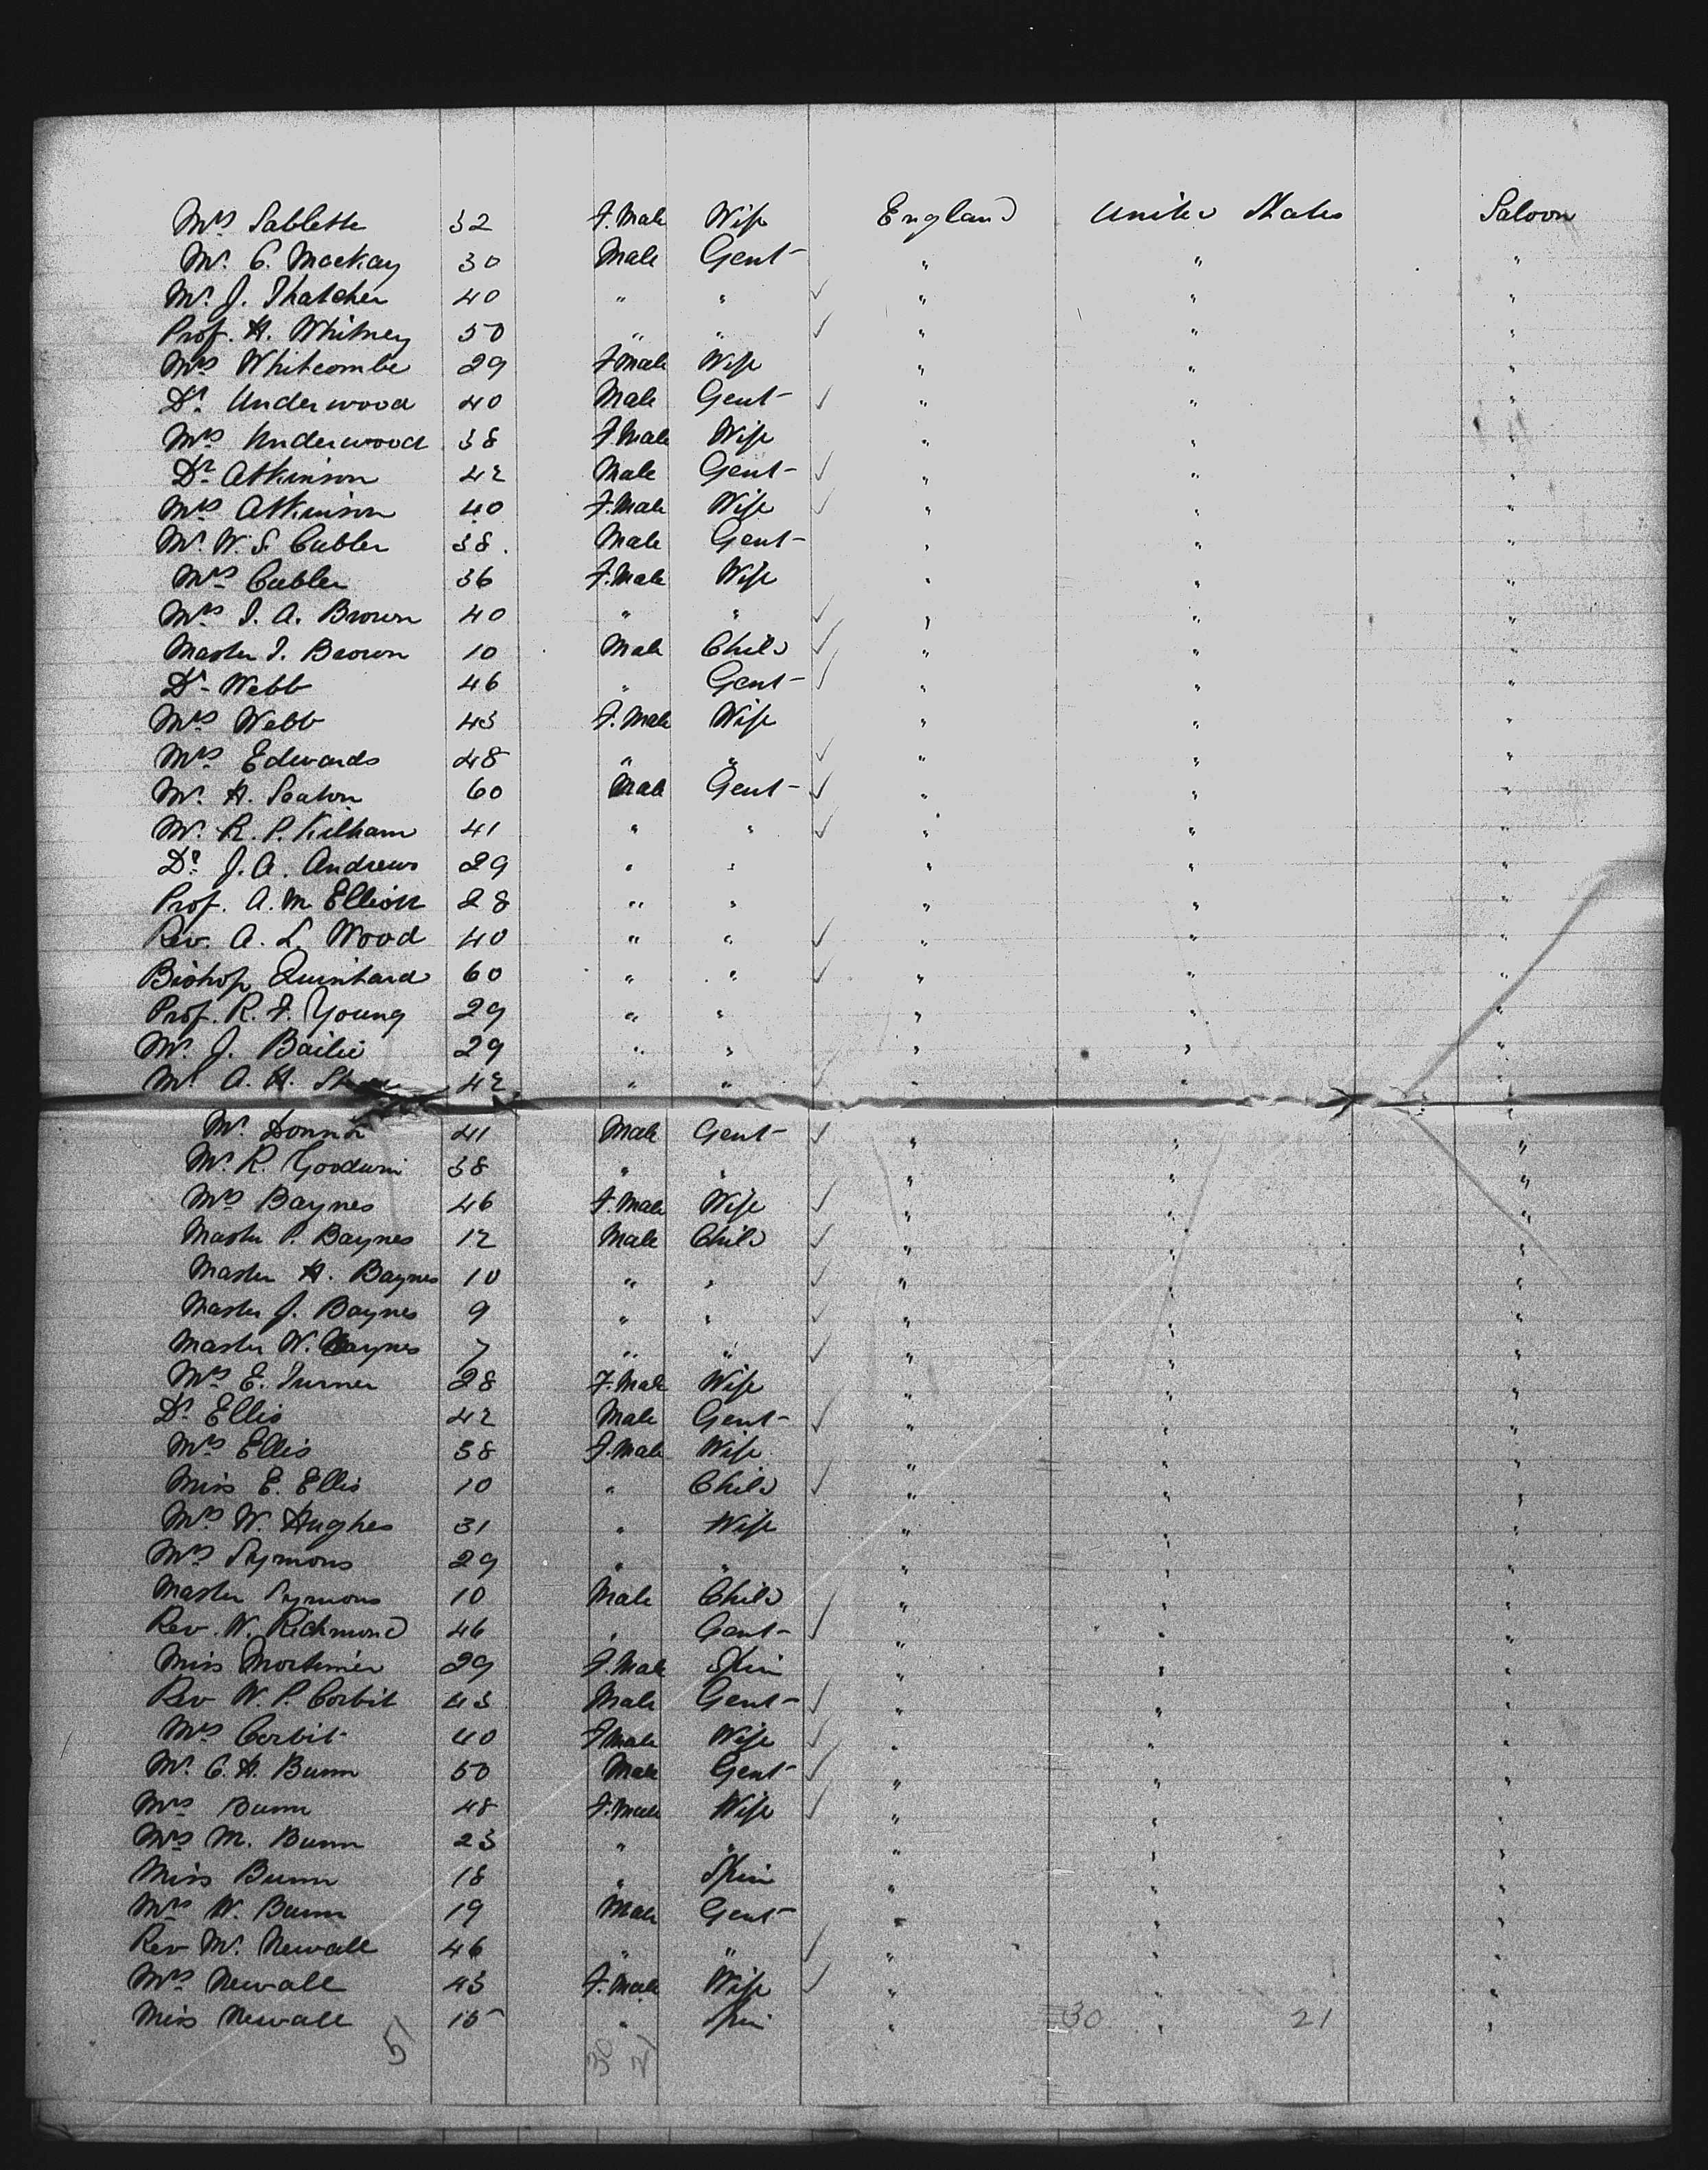 Mrs Sablette 32 F.Male Wife England United States Saloon
Mr. C. Mackay 30 Male Gent " " "
Mr. J. Thatcher 40 " " ✓ " " "
Prof. H. Whitney 50 " " ✓ " " "
Mrs Whitcombe 29 F.Male Wife " " "
Dr. Underwood 40 Male Gent ✓ " " "
Mrs Underwood 38 F.Male Wife " " "
Dr. Atkinson 42 Male Gent ✓ " " "
Mrs Atkinson 40 F.Male Wife ✓ " " "
Mr. W. S. Cubler 38. Male Gent " " "
Mrs Cubler 36 F.Male Wife " " "
Mrs J. A. Brown 40 " " ✓ " " "
Master J. Brown 10 Male Child ✓ " " "
Dr. Webb 46 " Gent ✓ " " "
Mrs Webb 43 F.Male Wife " " "
Mrs Edwards 48 " " ✓ " " "
Mr. H. Seaton 60 Male Gent ✓ " " "
Mr. R. P. Kilham 41 " " ✓ " " "
Dr. J. A. Andrews 29 " " " " "
Prof. A. M. Elliott 28 " " " " "
Rev. A. L. Wood 40 " " ✓ " " "
Bishop Quintard 60 " " ✓ " " "
Prof. R. F. Young 29 " " " " "
Mr. J. Bailie 29 " " " " "
Mr A. H. 42 " " ✓ " " "
Mr. 41 Male Gent ✓ " " "
Mr. R. Goodwin 38 " " " " "
Mrs Baynes 46 F.Male Wife ✓ " " "
Master P. Baynes 12 Male Child ✓ " " "
Master H. Baynes 10 " " ✓ " " "
Master J. Baynes 9 " " ✓ " " "
Master W. Baynes 7 " " ✓ " " "
Mrs E. Turner 28 F.Male Wife " " "
Dr. Ellis 42 Male Gent ✓ " " "
Mrs Ellis 38 F.Male Wife " " "
Miss E. Ellis 10 " Child ✓ " " "
Mrs W. Hughes 31 " Wife " " "
Mrs Symons 29 " " " " "
Master Symons 10 Male Child ✓ " " "
Rev. W. Richmond 46 " Gent ✓ " " "
Miss Mortimer 29 F.Male Spin " " "
Rev W. P. Corbit 43 Male Gent ✓ " " "
Mrs Corbit 40 F.Male Wife ✓ " " "
Mr. C. H. Bunn 50 Male Gent ✓ " " "
Mrs Bunn 48 F.Male Wife ✓ " " "
Mrs M. Bunn 23 " " " " "
Miss Bunn 18 " Spin " " "
Mr W. Bunn 19 Male Gent " " "
Rev Mr. Newall 46 " " ✓ " " "
Mrs Newall 43 F.Male Wife ✓ " " "
Miss Newall 15 " Spin " 30 " 21 "
51 30 21